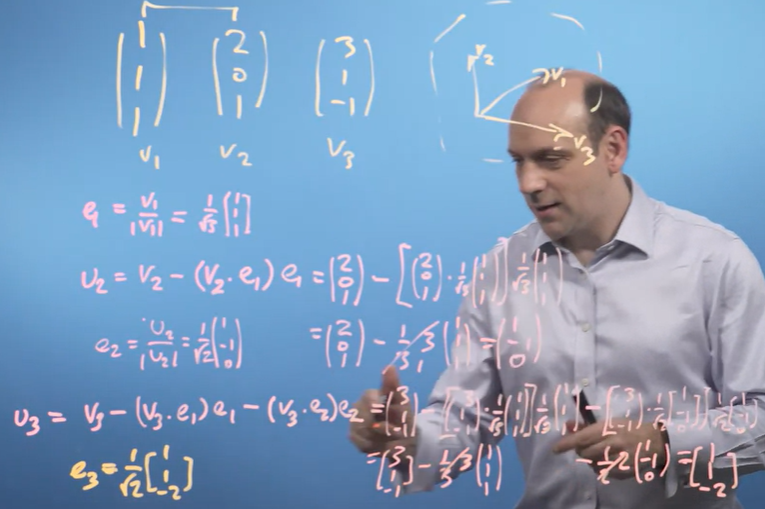 (1 1 1) (2 0 1) (3 1 -1)
v₁ v₂ v₃
v₂ v₁ v₃
e₁ = v₁/|v₁| = 1/√3 [1 1 1]
u₂ = v₂ - (v₂·e₁) e₁ = (2 0 1) - [(2 0 1)·1/√3 (1 1 1)] 1/√3 (1 1 1)
e₂ = u₂/|u₂| = 1/√2 (1 -1 0) = (2 0 1) - 1/3 3 (1 1 1) = (1 -1 0)
u₃ = v₃ - (v₃·e₁)e₁ - (v₃·e₂)e₂ = (3 1 -1) - [(3 1 -1)·1/√3 (1 1 1)] 1/√3 (1 1 1) - [(3 1 -1)·1/√2 (1 -1 0)] 1/√2 (1 -1 0)
e₃ = 1/√2 [1 1 -2] = [3 1 -1] - 1/3 3 (1 1 1) - 1/2 2 (1 -1 0) = [1 1 -2]